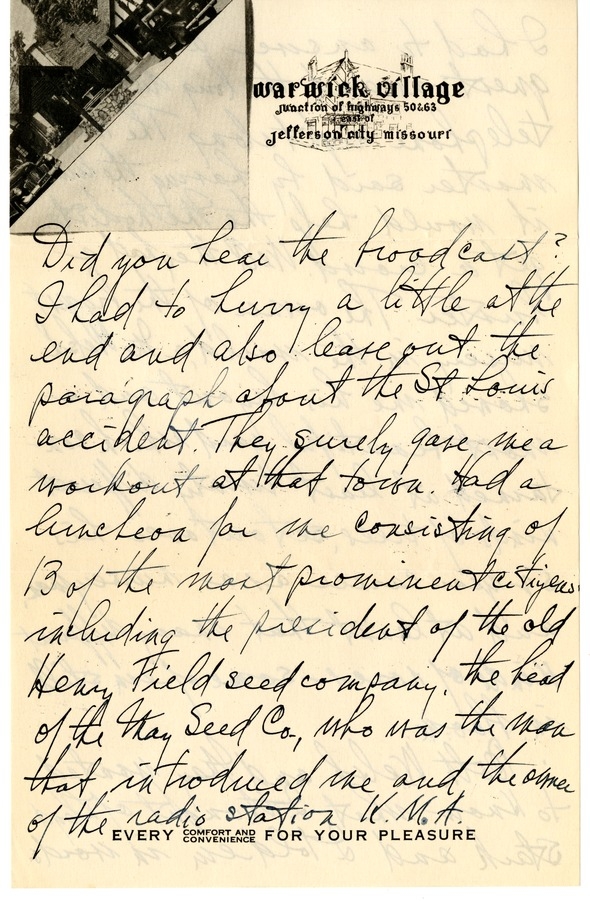 warwick village
junction of highways 50&63
east of
jefferson city missouri
Did you hear the broadcast?
I had to hurry a little at the
end and also leave out the
paragraph about the St Louis
accident. They surely gave me a
workout at that town. Had a
luncheon for me consisting of
13 of the most prominent citizens
including the president of the old
Henry Field seed company, the head
of the May Seed Co., who was the man
that introduced me and the owner
of the radio station K.M.A.
EVERY COMFORT AND CONVENIENCE FOR YOUR PLEASURE